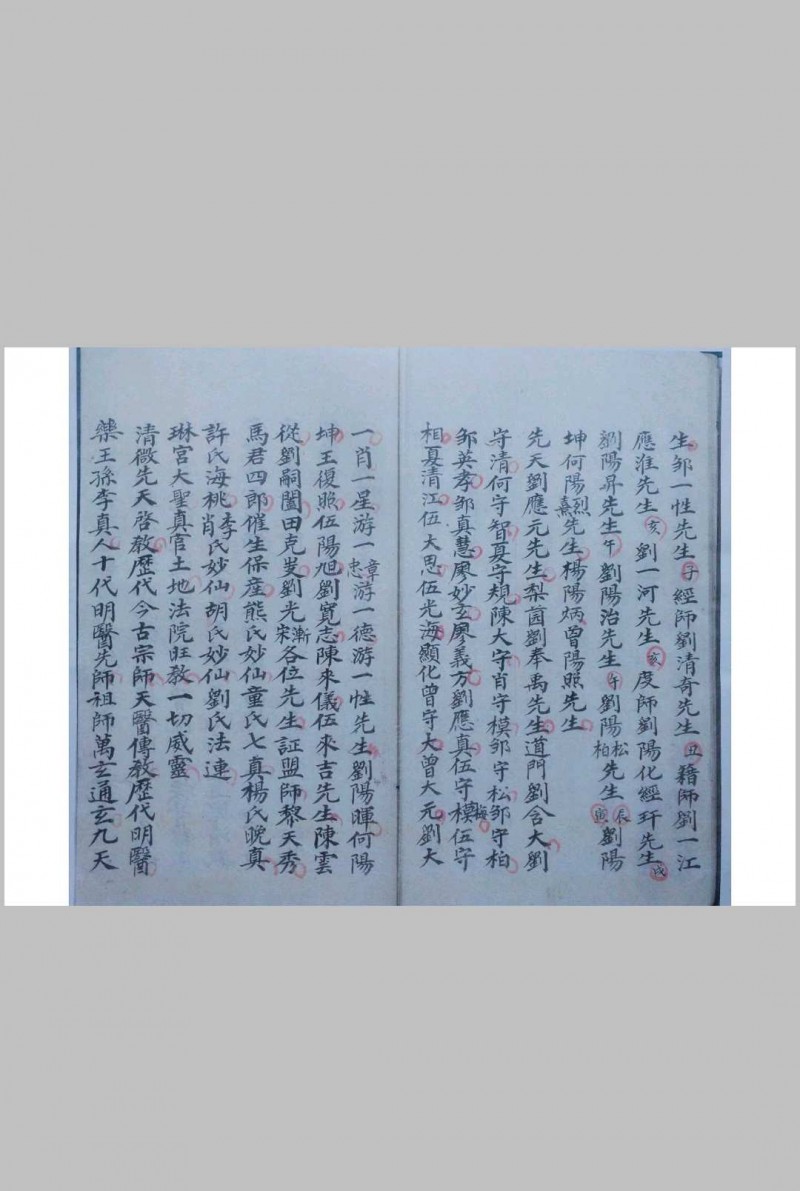 生邹一性先生子經師劉清奇先生丑籍師劉一江
應淮先生亥劉一河先生亥度師劉陽化經玕先生戌
劉陽昇先生午劉陽治先生午劉陽松柏先生辰寅劉陽
坤何陽烈熹先生楊陽炳曾陽照先生
先天劉應元先生梨茵劉奉禹先生道門劉含大劉
守清何守智夏守規陳大守肖守模邹守松邹守柏
邹英孝邹真慧廖妙玄廖義方劉應真伍守模梅伍守
相夏清江伍大思伍光海顯化曾守大曾大元劉大
一肖一星游一章忠游一德游一性先生劉陽暉何陽
坤王復照伍陽旭劉寬志陳來儀伍來吉先生陳雲
從劉嗣闔田克岌劉光漸宋各位先生証盟師黎天秀
馬君四郎催生保産熊氏妙仙童氏七真楊氏晚真
許氏海桃李肖氏妙仙胡氏妙仙劉氏法連
琳宫大聖真官土地法院旺教一切威靈
清微先天啓教歷代今古宗師天醫傳教歷代明醫
藥王孫李真人十代明醫先師祖師萬玄通玄九天